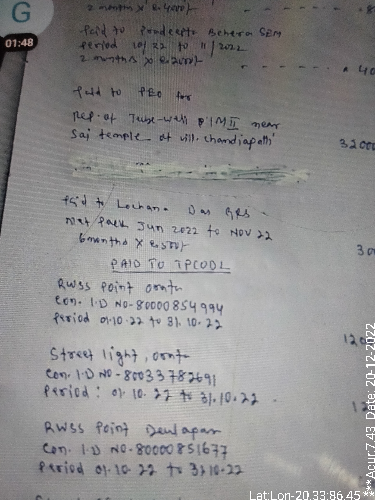 G
01:48
2 months x Rs.4000/-
Paid to Pradeepta Behera SEM
period 10/22 to 11/2022
2 months x Rs.2000/-
Paid to PEO for
Rep. of Tube-well PIMII near
Sai temple at vill. chandiapalli
32000
Paid to Lochana Das GRS
Net Pack Jun 2022 to NOV 22
6 months x Rs.500/-
PAID TO TPCODL
RWSS Point
Con. I.D NO-80000854994
Period 01.10.22 to 31.10.22
Street light,
Con. I.D NO-80033782691
Period: 01.10.22 to 31.10.22
RWSS Point Deulapara
Con. I.D NO.80000851677
Period 01.10.22 to 31.10.22
Lat:Lon-20.33:86.45***Acur:7.43 Date: 20-12-2022